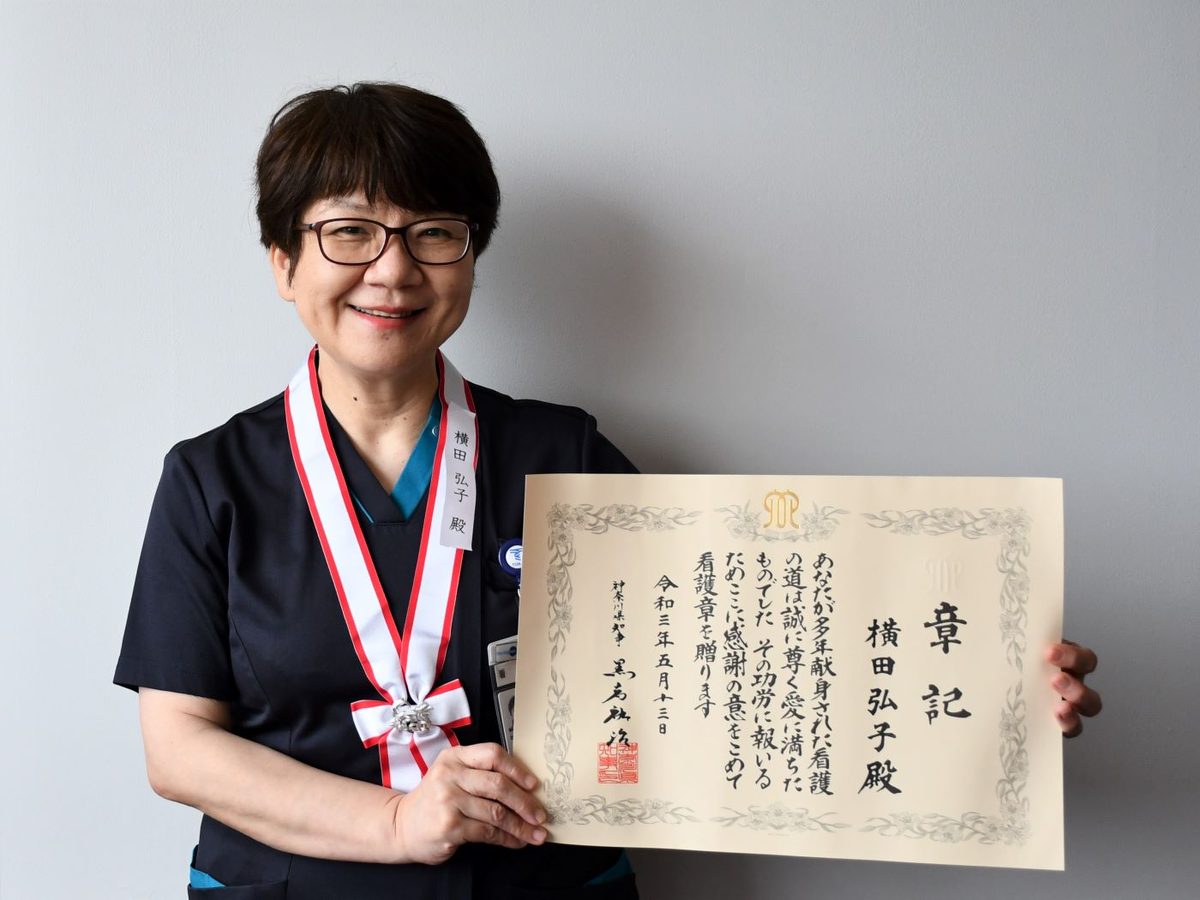 横田 弘子 殿
章記
横田弘子殿
あなたが多年献身された看護
の道は誠に尊く愛に満ちた
ものでした その功労に報いる
ためここに感謝の意をこめて
看護章を贈ります
令和三年五月十三日
神奈川県知事 黒岩祐治